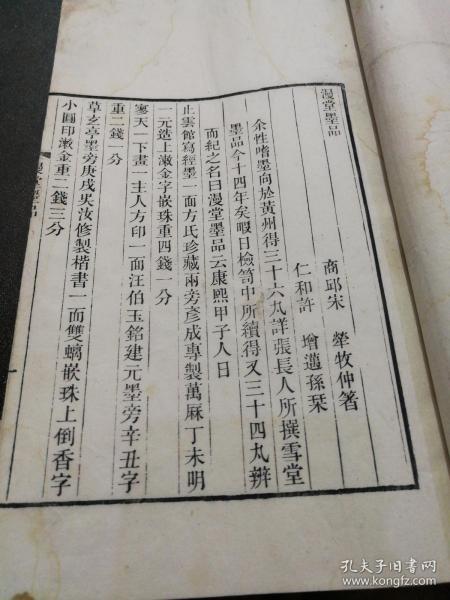 漫堂墨品
商邱宋　犖牧仲箸
仁和許　增邁孫栞
余性嗜墨向於黃州得三十六丸詳張長人所撰雪堂
墨品今十四年矣暇日檢笥中所續得又三十四丸辨
而紀之名曰漫堂墨品云康熙甲子人日
止雲館寫經墨一面方氏珍藏兩旁彥成專製萬厤丁未明
一元造上漱金字嵌珠重四錢一分
寥天一下畫一主人方印一面汪伯玉銘建元墨旁辛丑字
重二錢一分
草玄亭墨旁庚戌吳汝修製楷書一面雙螭嵌珠上倒香字
小圓印漱金重二錢三分
漫堂墨品
一
孔夫子旧书网
www.kongfz.com